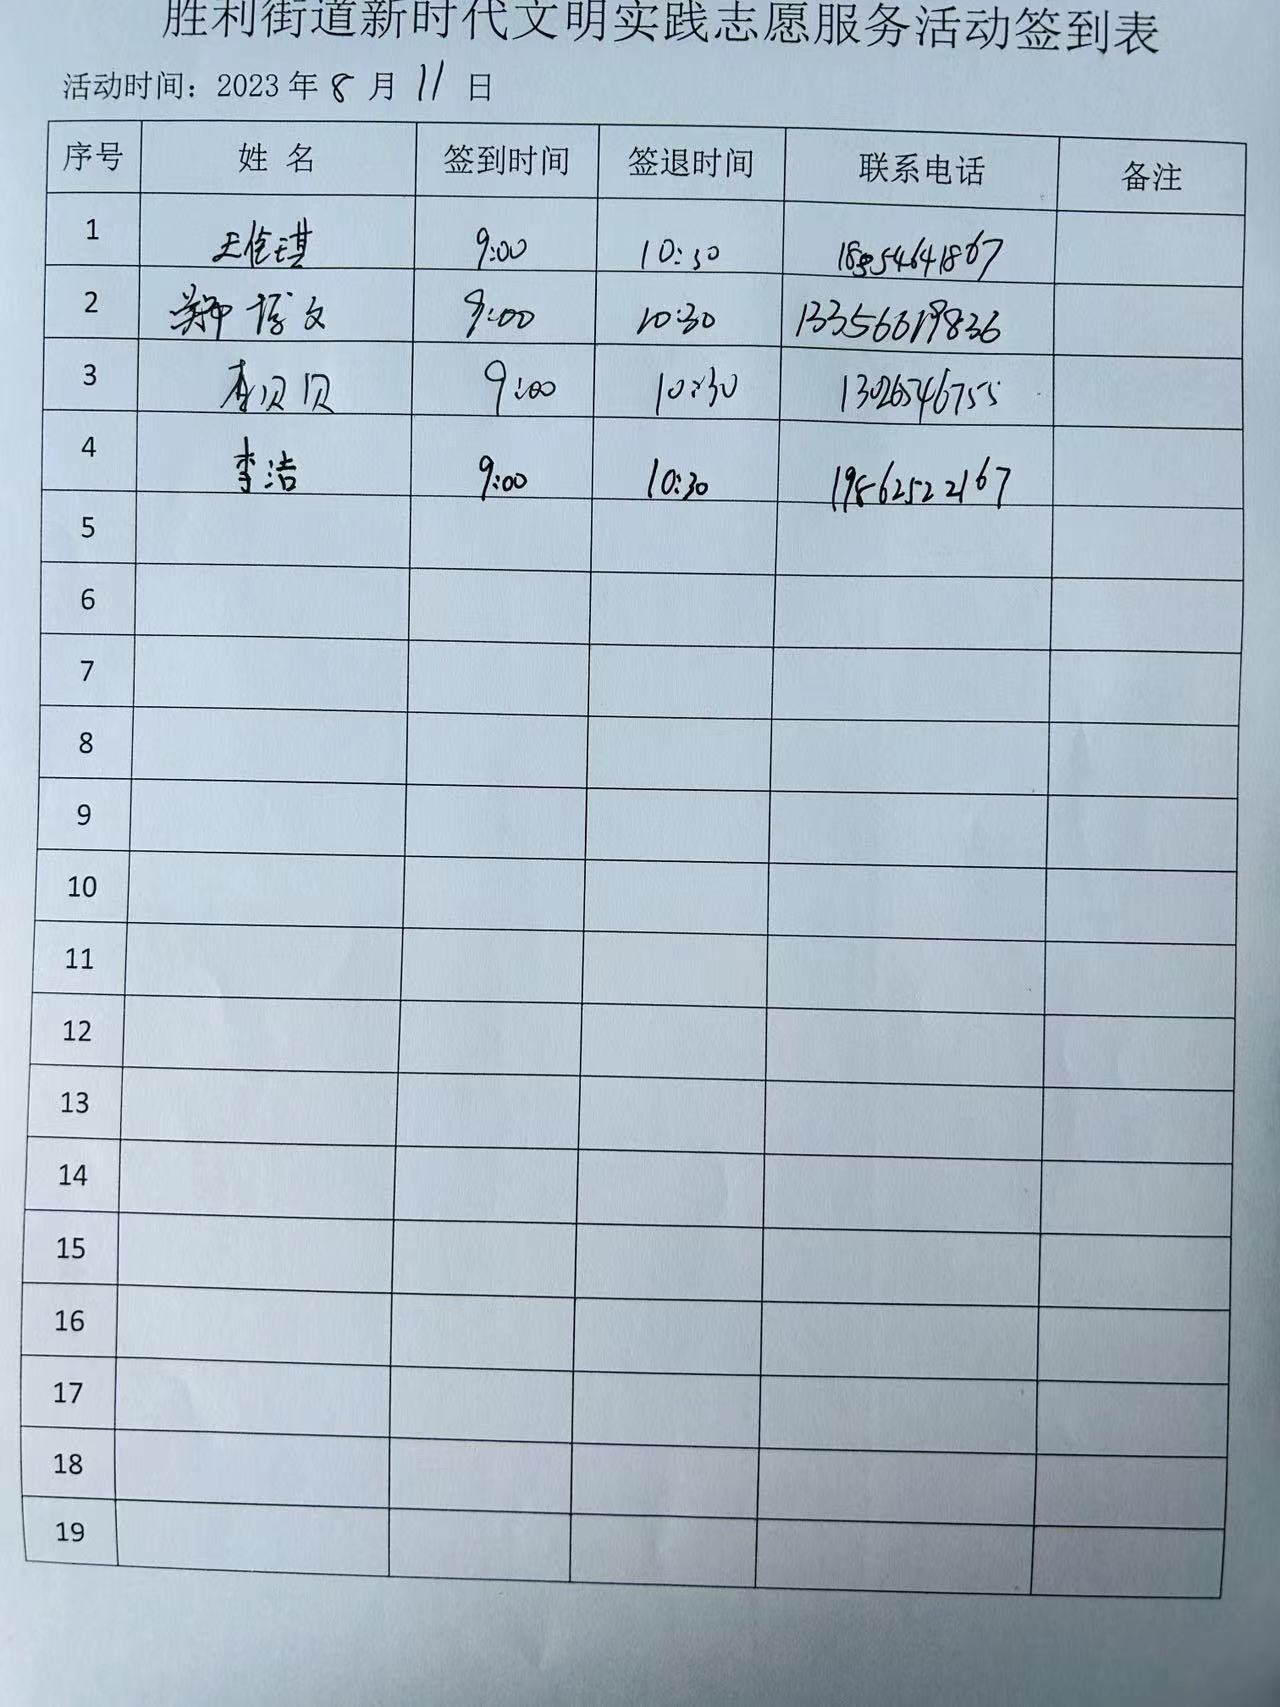 胜利街道新时代文明实践志愿服务活动签到表
活动时间：2023 年 8 月 11 日
序号 姓 名 签到时间 签退时间 联系电话 备注
1 王佳琪 9:00 10:30 18554641867
2 郑博文 9:00 10:30 13356619836
3 李贝贝 9:00 10:30 13026546755
4 李洁 9:00 10:30 19862522167
5
6
7
8
9
10
11
12
13
14
15
16
17
18
19